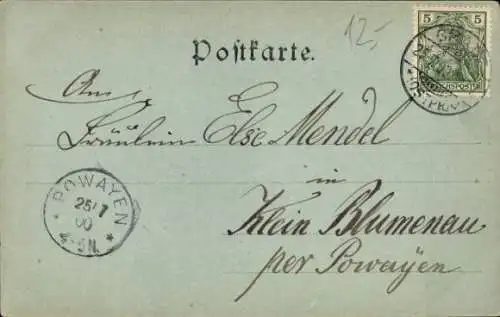 12,-
Postkarte.
5
5
An
Fräulein Else Mendel
in
Klein Blumenau
per Powayen
POWAYEN
25/7
00
4-5N.